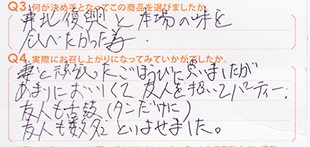 Q3.何が決め手となってこの商品を選びましたか。
東北復興と本場の味を
たべたかった為
Q4.実際にお召し上がりになってみていかがでしたか。
妻と頑張ったごほうびに買いましたが
あまりにおいしくて友人を招いてパーティー。
友人も舌鼓(タンだけに)
友人も数名とりよせました。